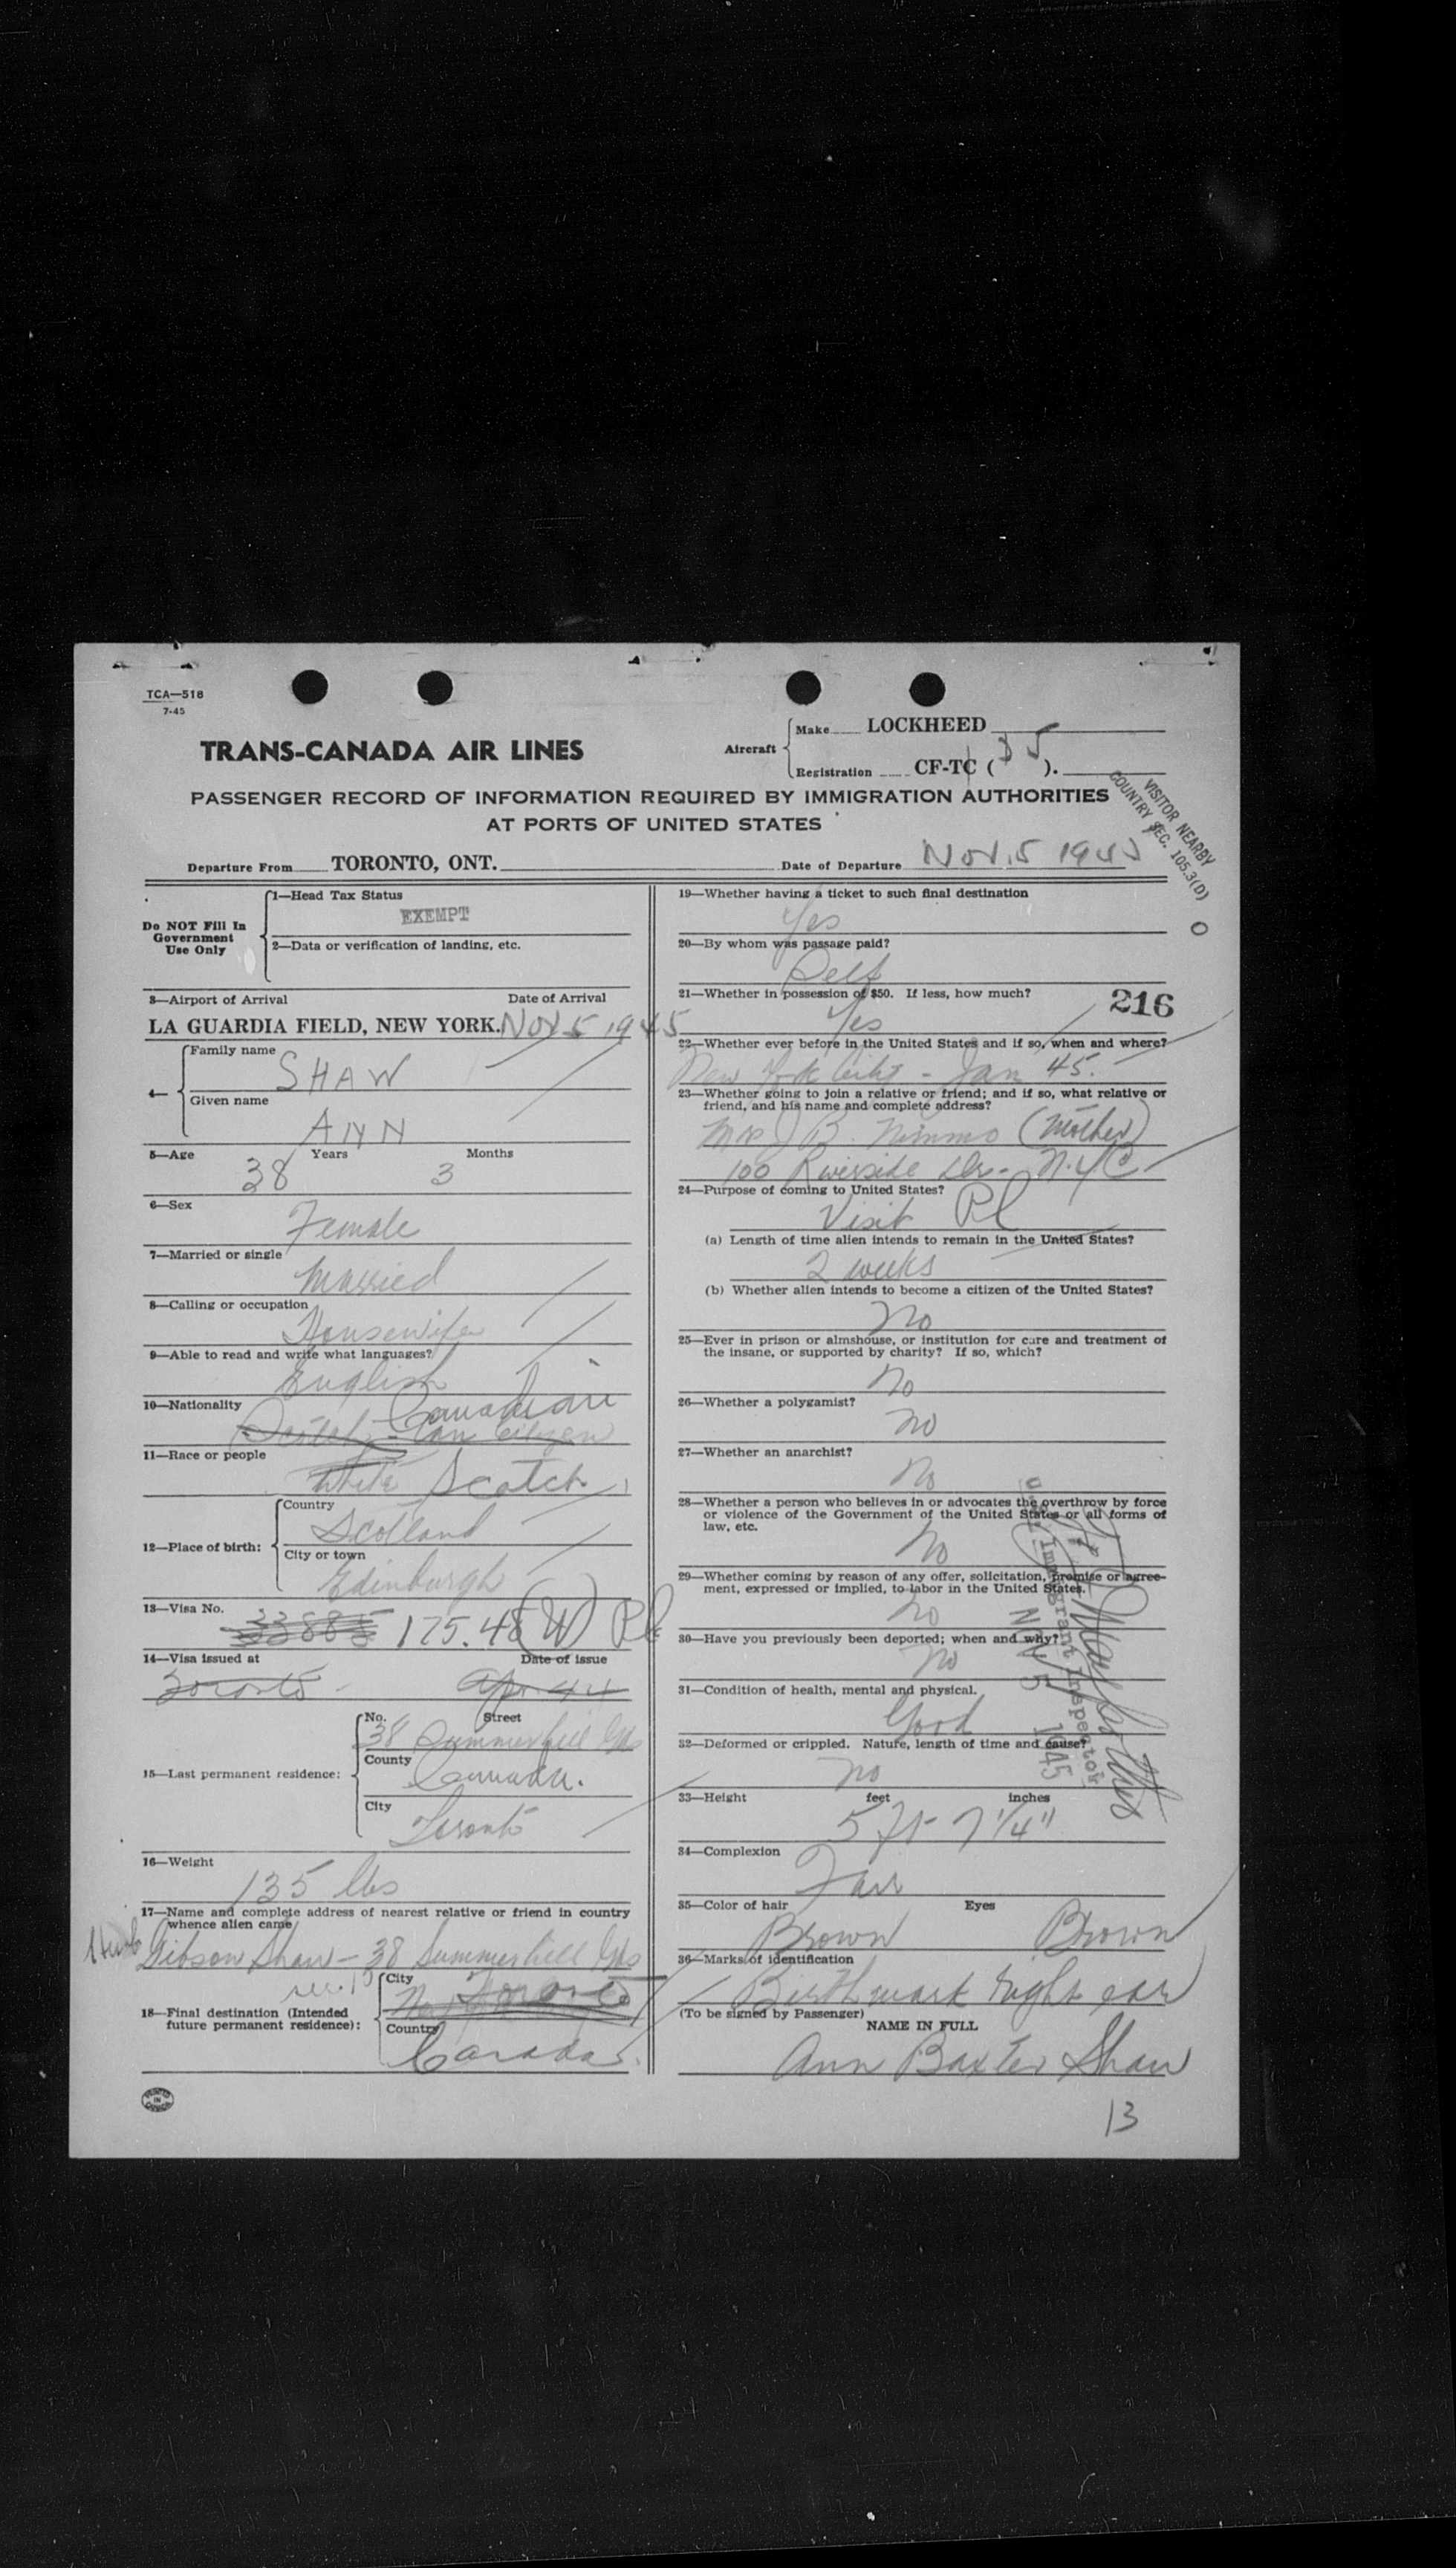 TCA—518
7-45
TRANS-CANADA AIR LINES
Aircraft
Make LOCKHEED
Registration CF-TC ( 35 ).
PASSENGER RECORD OF INFORMATION REQUIRED BY IMMIGRATION AUTHORITIES
AT PORTS OF UNITED STATES
VISITOR NEARBY
COUNTRY SEC. 105.3(D)
Departure From TORONTO, ONT. Date of Departure Nov. 5 1945
Do NOT Fill In
Government
Use Only
1—Head Tax Status
EXEMPT
2—Data or verification of landing, etc.
3—Airport of Arrival Date of Arrival
LA GUARDIA FIELD, NEW YORK. Nov 5 1945
4—
Family name
SHAW
Given name
ANN
5—Age Years Months
38 3
6—Sex
Female
7—Married or single
Married
8—Calling or occupation
Housewife
9—Able to read and write what languages?
English
10—Nationality
Canadian
Scotch - Can Citizen
11—Race or people
White Scotch
12—Place of birth:
Country
Scotland
City or town
Edinburgh
13—Visa No.
33885 175.48 (W) Pl
14—Visa issued at Date of issue
Toronto - Apr 44
15—Last permanent residence:
No. Street
38 Summerhill Gds
County
Canada.
City
Toronto
16—Weight
135 lbs
17—Name and complete address of nearest relative or friend in country
whence alien came
Husb Gibson Shaw - 38 Summerhill Gds
18—Final destination (Intended
future permanent residence):
City
Toronto
Country
Canada
19—Whether having a ticket to such final destination
Yes
20—By whom was passage paid?
Self
21—Whether in possession of $50. If less, how much?
Yes
216
22—Whether ever before in the United States and if so, when and where?
New York City - Jan 45.
23—Whether going to join a relative or friend; and if so, what relative or
friend, and his name and complete address?
Mrs J B. Nimmo (Mother)
100 Riverside Dr. - N.Y.C
24—Purpose of coming to United States?
Visit Pl
(a) Length of time alien intends to remain in the United States?
2 weeks
(b) Whether alien intends to become a citizen of the United States?
No
25—Ever in prison or almshouse, or institution for care and treatment of
the insane, or supported by charity? If so, which?
No
26—Whether a polygamist?
No
27—Whether an anarchist?
No
28—Whether a person who believes in or advocates the overthrow by force
or violence of the Government of the United States or all forms of
law, etc.
No
29—Whether coming by reason of any offer, solicitation, promise or agree-
ment, expressed or implied, to labor in the United States.
No
30—Have you previously been deported; when and why?
No
31—Condition of health, mental and physical.
Good
32—Deformed or crippled. Nature, length of time and cause?
No
U.S. Immigrant Inspector
NOV 5 1945
33—Height feet inches
5 ft - 7 1/4"
34—Complexion
Fair
35—Color of hair Eyes
Brown Brown
36—Marks of identification
Birthmark right ear
(To be signed by Passenger)
NAME IN FULL
Ann Baxter Shaw
13
PRINTED
IN
CANADA